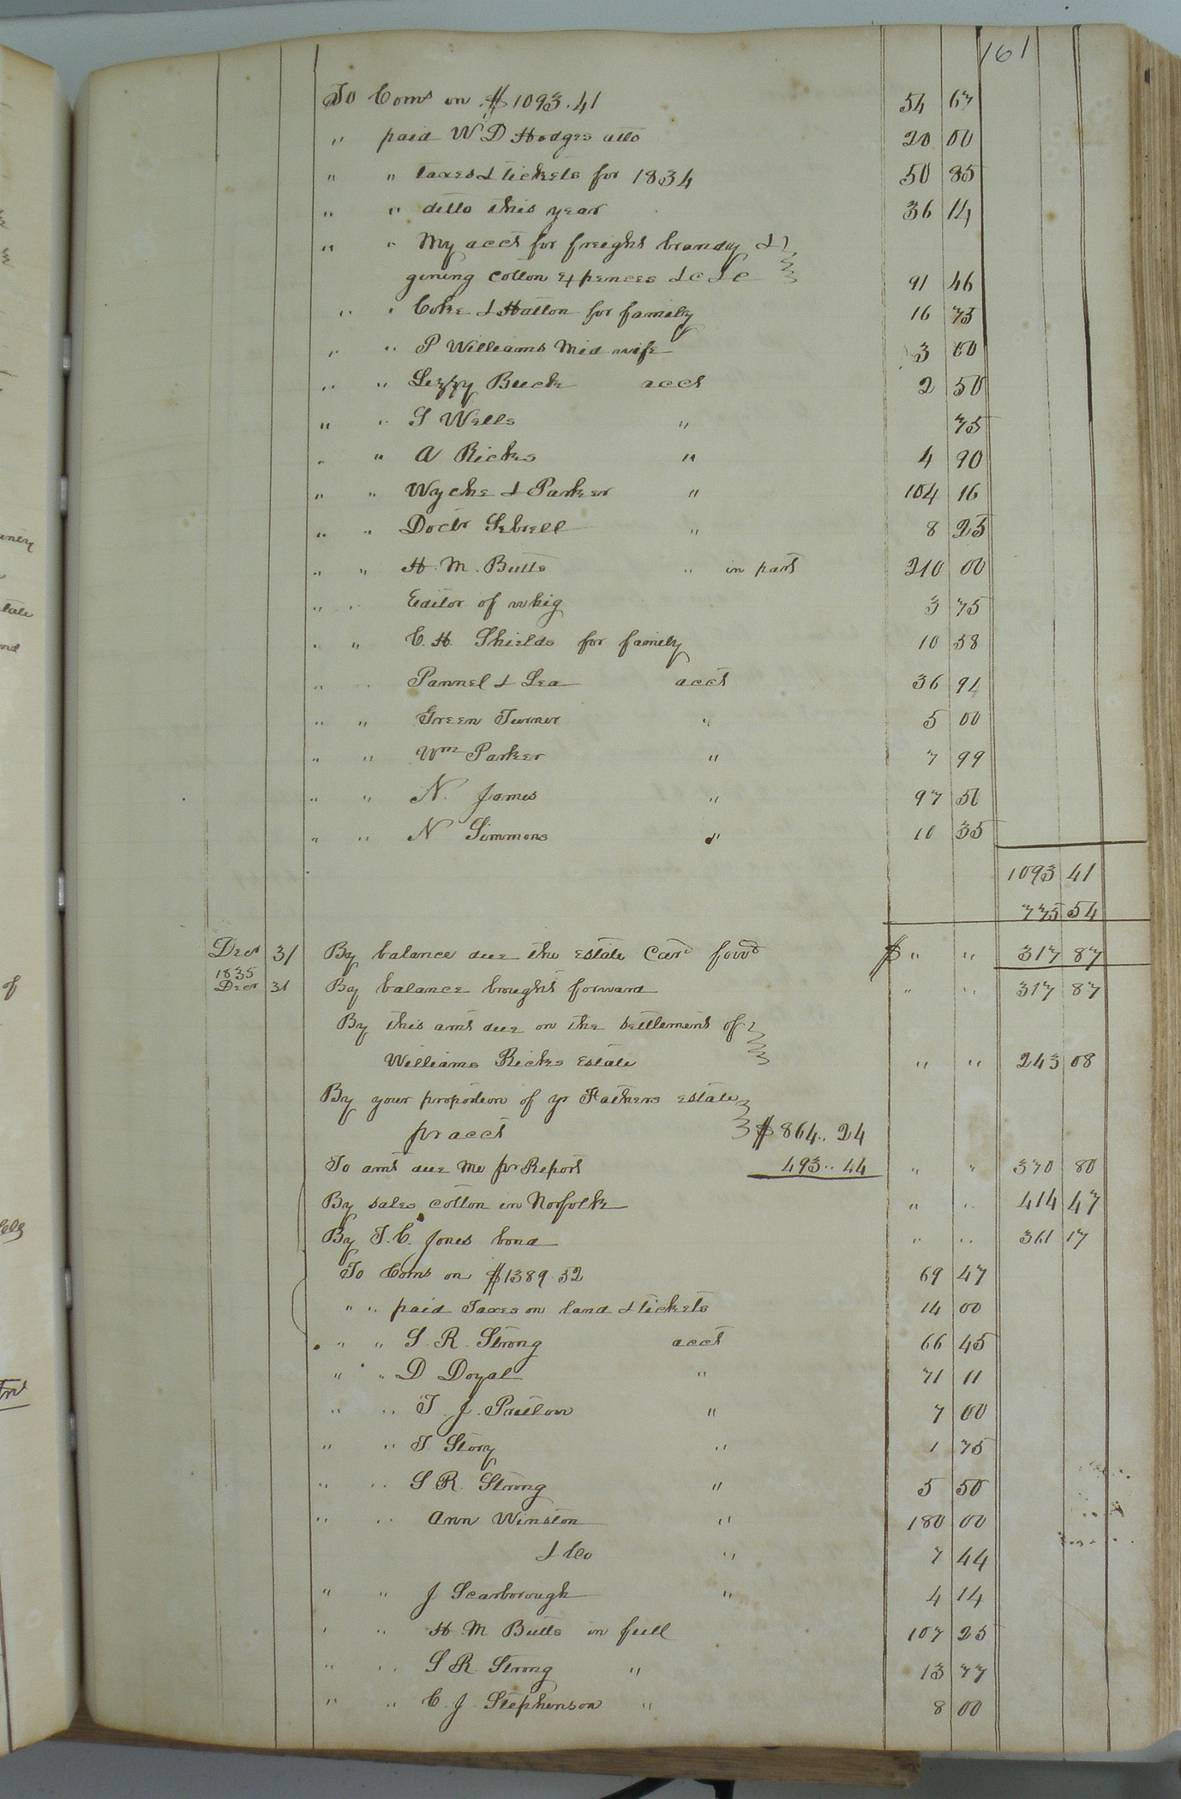 161
To Coms on $1093.41 54 67
" paid W D Hodges atto 20 00
" " taxes & tickets for 1834 50 85
" " ditto this year 36 14
" " My acct for freight brandy &
gining cotton expences &c &c 91 46
" " Coke & Hatton for family 16 75
" " P Williams Mid wife 3 00
" " Lizzy Buck acct 2 50
" " S Wells " 75
" " A Ricks " 4 90
" " Wyche & Parker " 104 16
" " Doctr Sebrell " 8 25
" " H. M. Butts " in part 210 00
" " Editor of whig 3 75
" " C. H. Shields for family 10 58
" " Pannel & Lea acct 36 94
" " Green Turner " 5 00
" " Wm Parker " 7 99
" " N. James " 97 50
" " N Simmons " 10 35
1093 41
775 54
Decr 31 By balance due the Estate Card fowd $ " " 317 87
1835
Decr 31 By balance brought forward " " 317 87
By this amt due on the settlement of
Williams Ricks Estate " " 243 08
By your proportion of yr Fathers estate
pr acct $864.. 24
To amt due me pr Report 493.. 44 " " 370 80
By sales cotton in Norfolk " " 414 47
By T. C. Jones bond " " 361 17
To Coms on $1389.52 69 47
" " paid Taxes on land & tickets 14 00
" " S. R. Strong acct 66 45
" " D Doyal " 71 11
" " T. J. Pretlow " 7 00
" " T Story " 1 75
" " S R. Strong " 5 50
" " Ann Winston " 180 00
& Co " 7 44
" " J Scarborough " 4 14
" " H M Butts in full 107 25
" " S R Strong " 13 77
" " C. J. Stephenson " 8 00